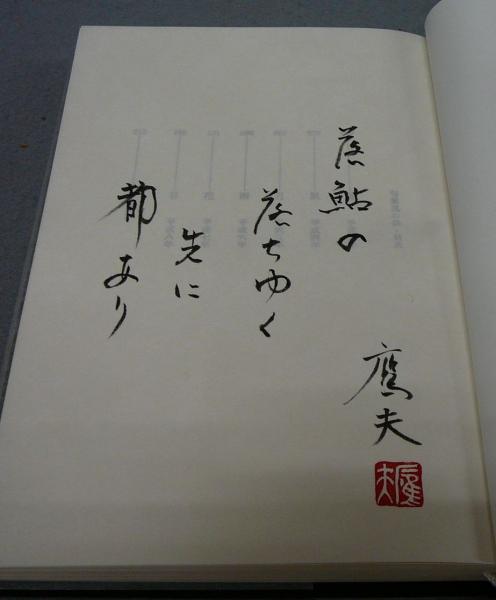 落鮎の
落ちゆく
先に
都あり
鷹夫